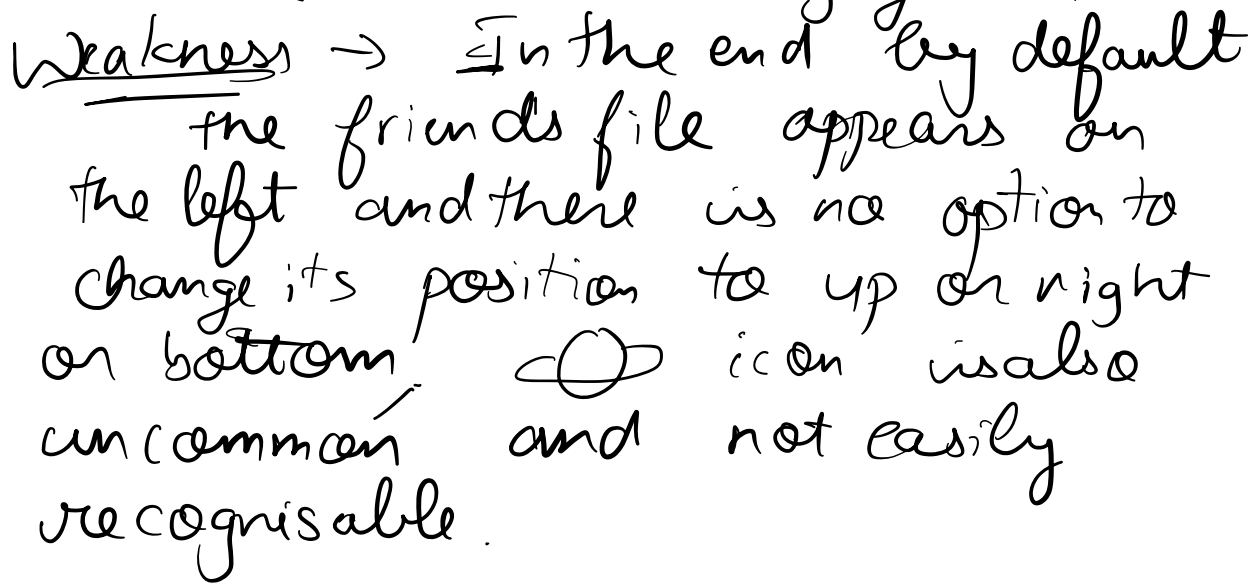 Weakness → In the end by default
the friends file appears on
the left and there is no option to
change its position to up or right
or bottom. icon is also
uncommon and not easily
recognisable.